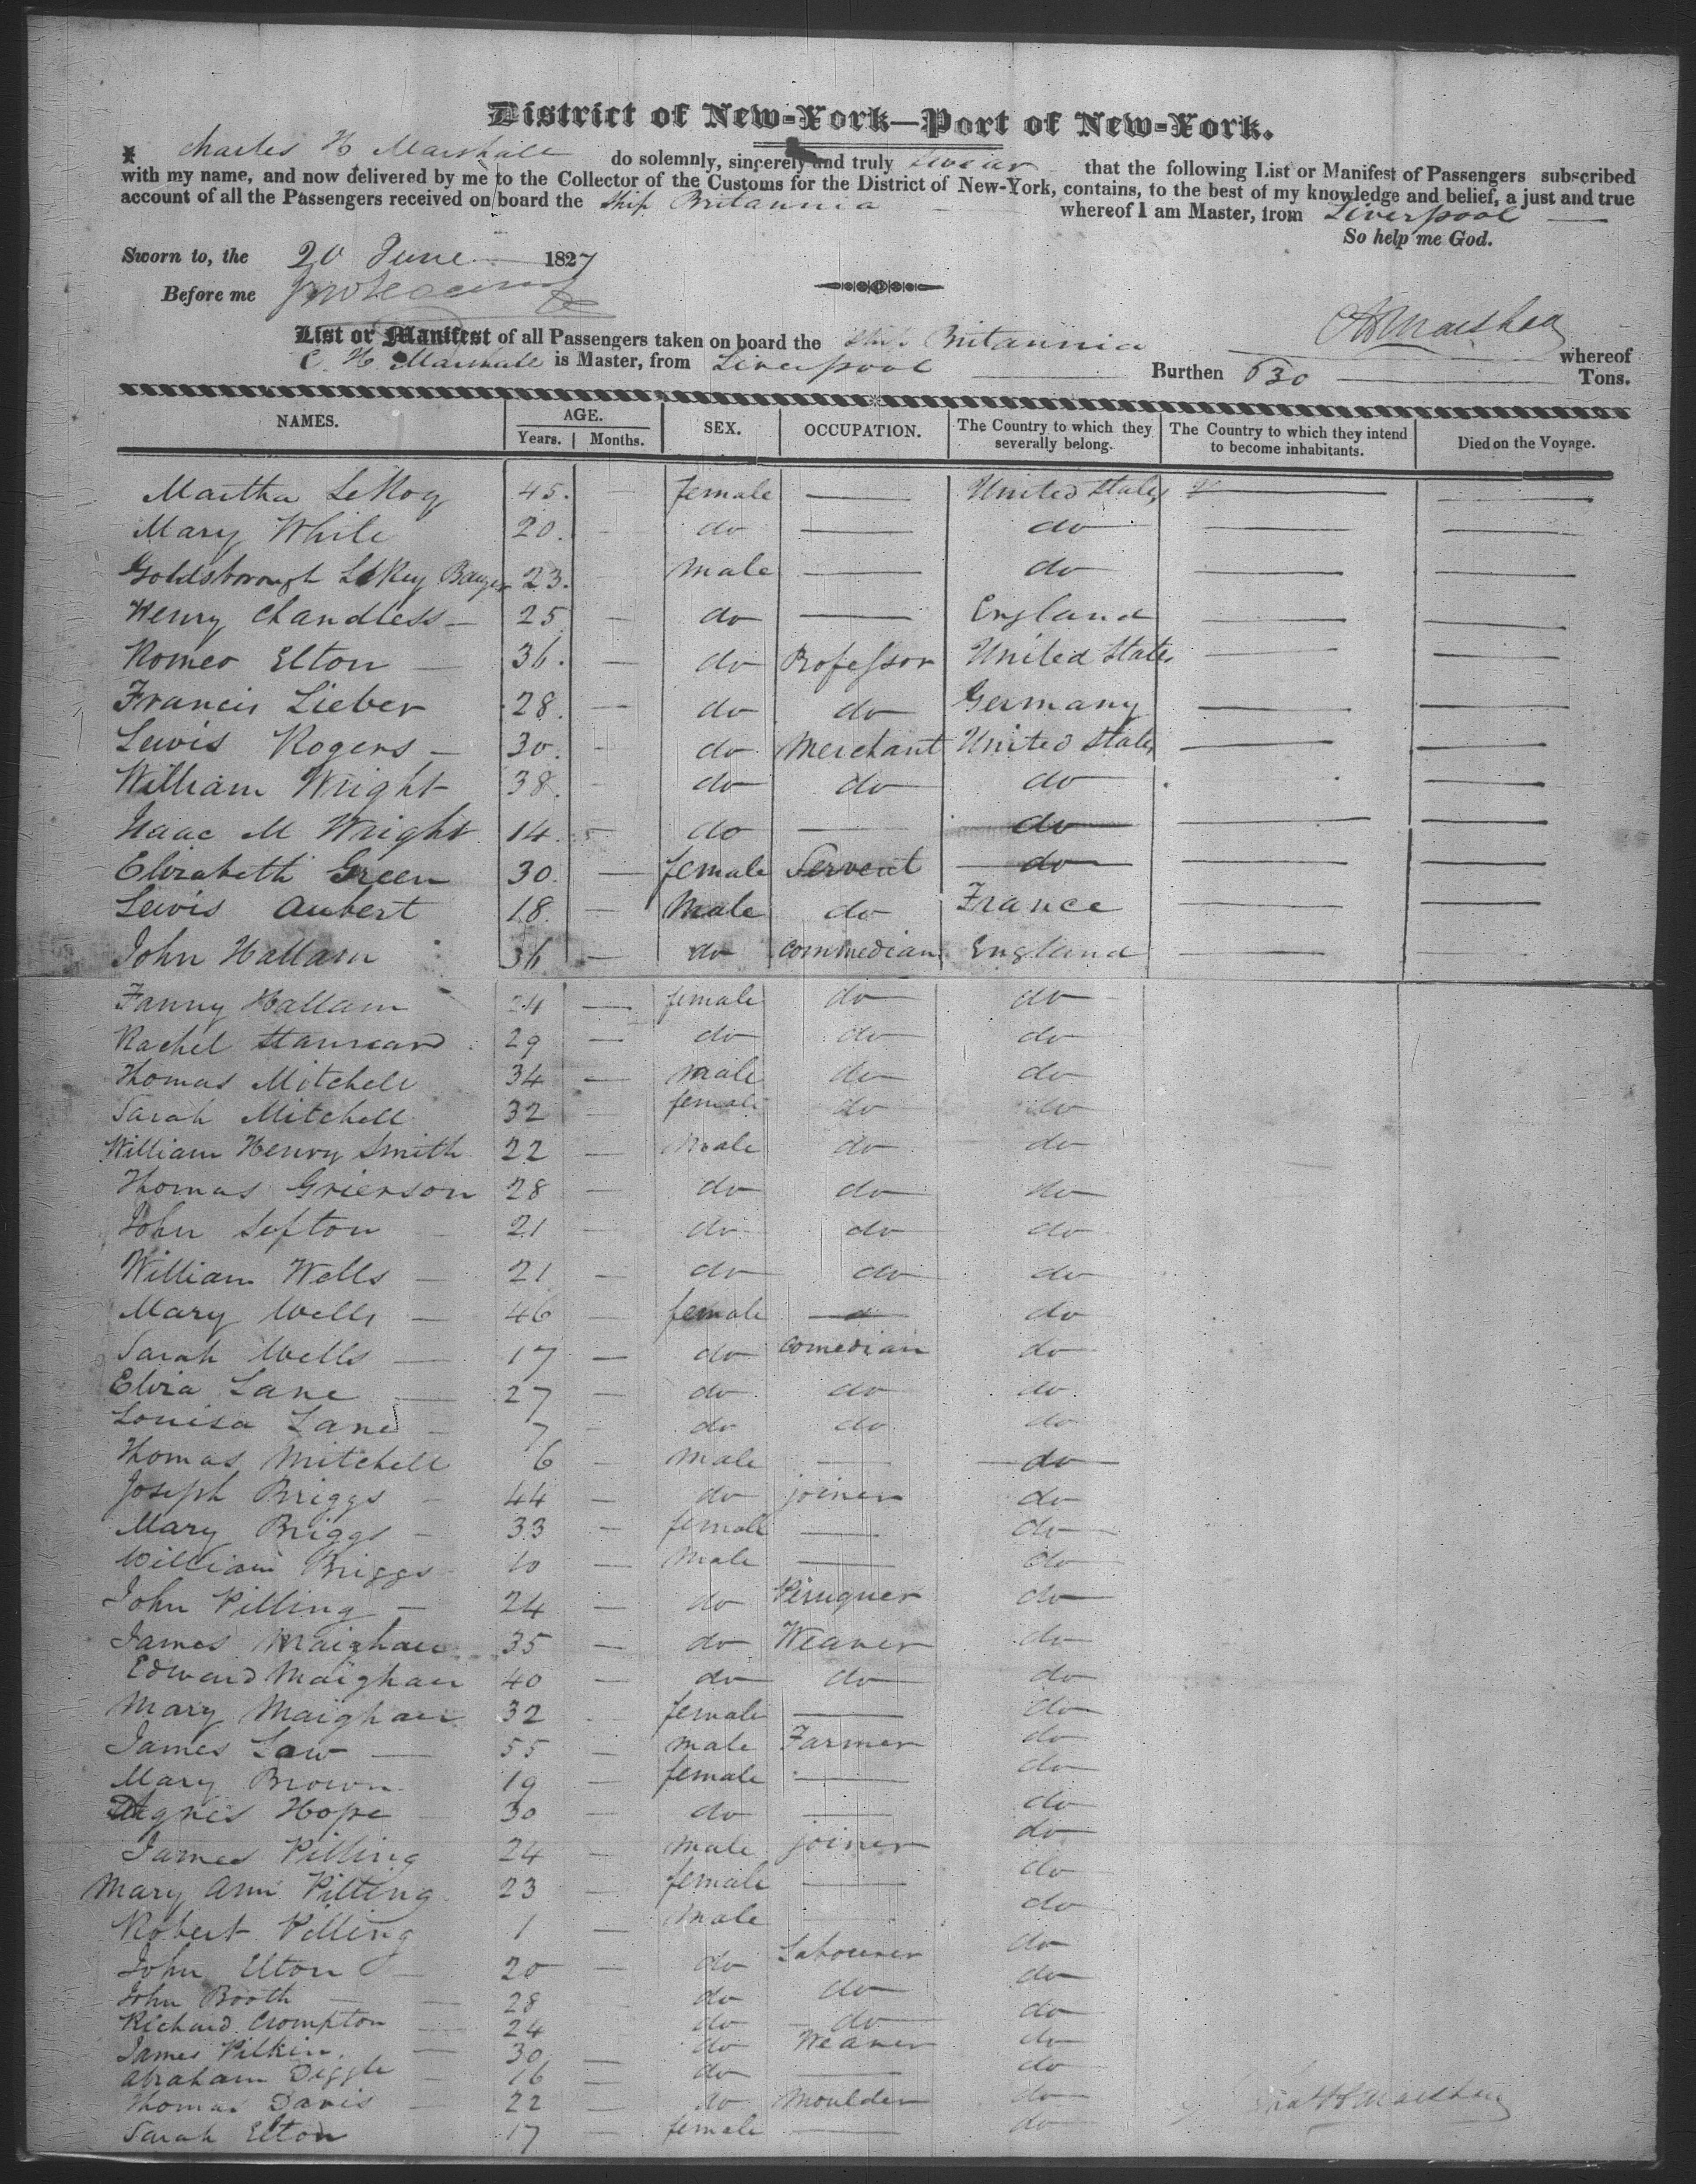 District of New-York—Port of New-York.
I Charles H Marshall do solemnly, sincerely and truly swear that the following List or Manifest of Passengers subscribed
with my name, and now delivered by me to the Collector of the Customs for the District of New-York, contains, to the best of my knowledge and belief, a just and true
account of all the Passengers received on board the Ship Britannia whereof I am Master, from Liverpool
So help me God.
Sworn to, the 20 June 1827
Before me
C H Marshall
List or Manifest of all Passengers taken on board the Ship Britannia whereof
C. H. Marshall is Master, from Liverpool Burthen 630 Tons.
NAMES. AGE. Years. Months. SEX. OCCUPATION. The Country to which they severally belong. The Country to which they intend to become inhabitants. Died on the Voyage.
Martha LeRoy 45. — female — United States — —
Mary White 20. — do — do — —
Goldsborough LeRoy Banyer 23. — Male — do — —
Henry Chandless — 25 — do — England — —
Romeo Elton — 36. — do Professor United States — —
Francis Lieber 28. — do do Germany — —
Lewis Rogers — 30. — do Merchant United States — —
William Wright 38. — do do do —
Isaac M Wright 14. — do — do — —
Elizabeth Green 30. — female Servent do — —
Lewis Aubert 18. — Male do France — —
John Hallam 36 — do Commedian England — —
Fanny Hallam 24 — female do do
Rachel Stannard 29 — do do do
Thomas Mitchell 34 — male do do
Sarah Mitchell 32 — female do do
William Henry Smith 22 — Male do do
Thomas Grierson 28 — do do do
John Sefton 21 — do do do
William Wells — 21 — do do do
Mary Wells — 46 — female — do
Sarah Wells — 17 — do Comedian do
Eliza Lane — 27 — do do do
Louisa Lane — 7 — do do do
Thomas Mitchell 6 — Male — do
Joseph Briggs — 44 — do joiner do
Mary Briggs — 33 — female — do
William Briggs 10 — Male — do
John Pilling — 24 — do Peruquer do
James Maighan 35 — do Weaver do
Edward Maighan 40 — do do do
Mary Maighan 32 — female — do
James Law — 55 — male Farmer do
Mary Brown 19 — female — do
Agnes Hope — 30 — do — do
James Pilling 24 — male joiner do
Mary Ann Pilling 23 — female — do
Robert Pilling 1 — Male — do
John Elton — 20 — do Labourer do
John Booth — 28 do do do
Richard Crompton — 24 do do do
James Pilkin — 30 — do Weaver do
Abraham Diggle — 16 — do — do
Thomas Davis — 22 — do Moulder do
Sarah Elton 17 — female — do
Chas H Marshall